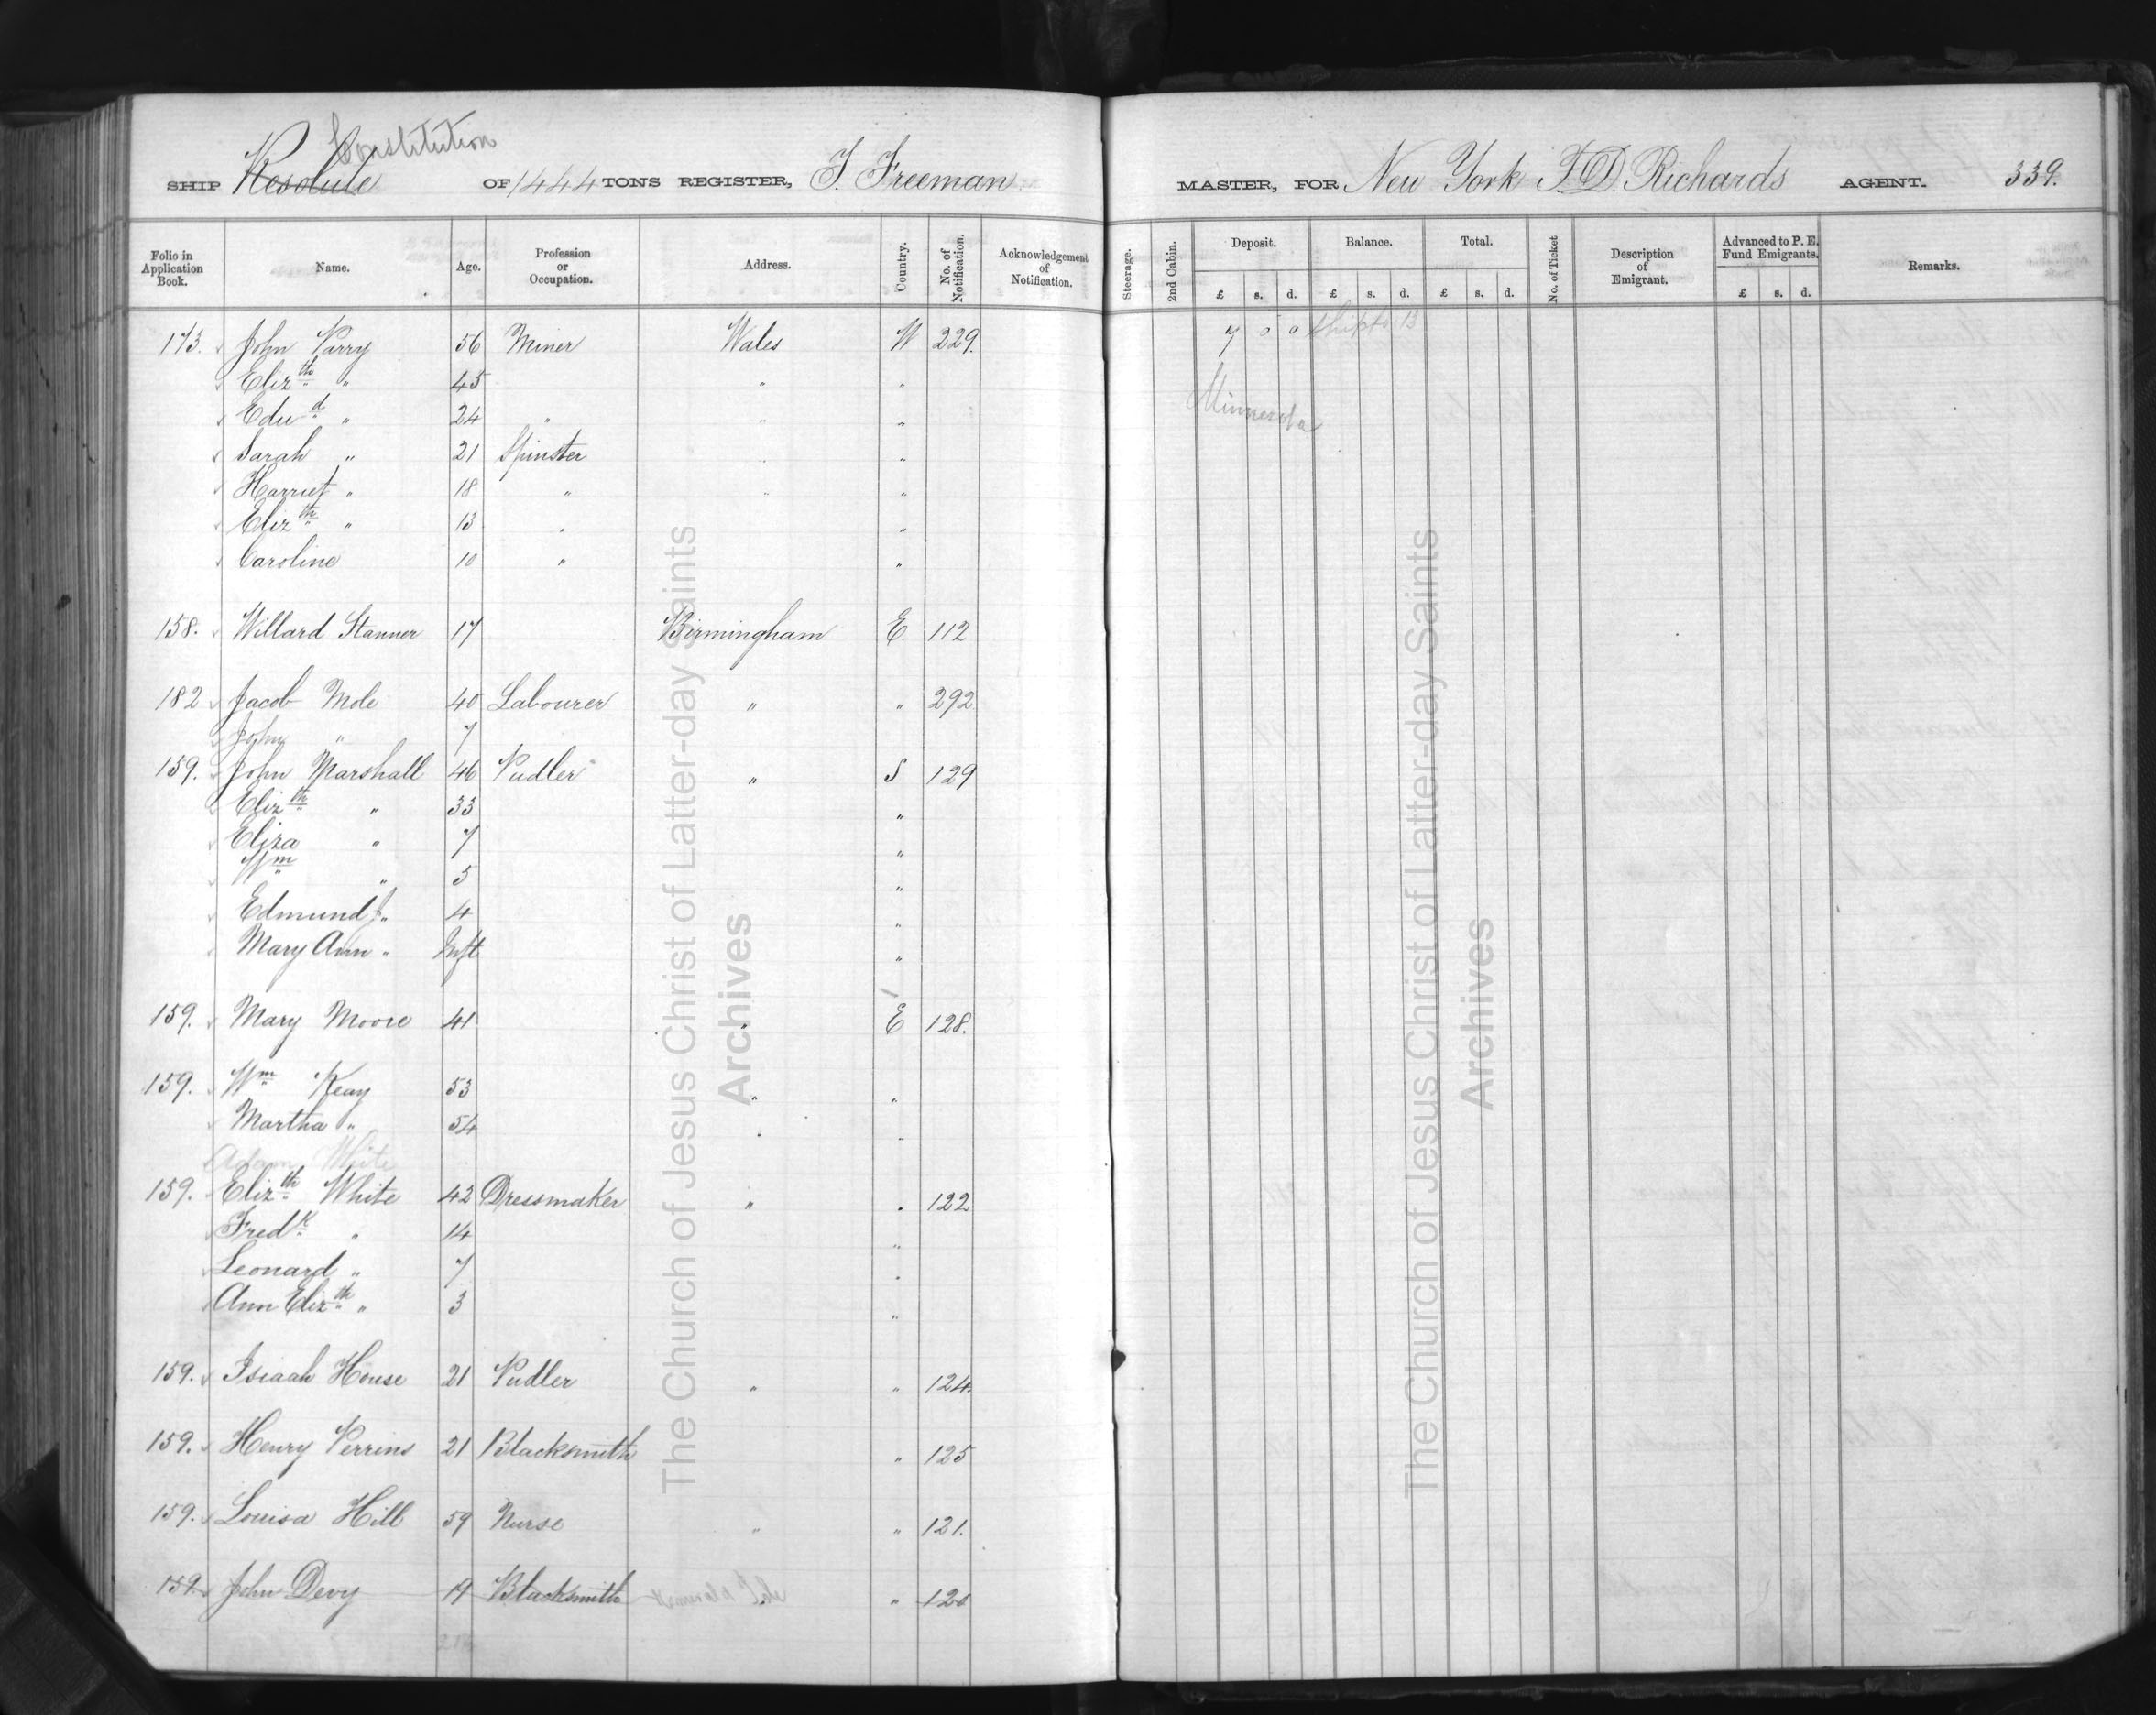 Constitution
SHIP Resolute OF 1444 TONS REGISTER, F. Freeman MASTER, FOR New York F.D. Richards AGENT. 339.
Folio in Application Book. Name. Age. Profession or Occupation. Address. Country. No. of Notification. Acknowledgement of Notification. Steerage. 2nd Cabin. Deposit. £ s. d. Balance. £ s. d. Total. £ s. d. No. of Ticket Description of Emigrant. Advanced to P. E. Fund Emigrants. £ s. d. Remarks.
173. John Parry 56 Miner Wales W 229. 7 0 0
Elizth " 45 " "
Minnesota
Edwd " 24 " " "
Sarah " 21 Spinster " "
Harriet " 18 " " "
Elizth " 13 " "
Caroline 10 " "
158. Willard Stanner 17 Birmingham E 112
182 Jacob Mole 40 Labourer " " 292
John " 7
159. John Marshall 46 Pudler " S 129
Elizth " 33 "
Eliza " 7 "
Wm " 5 "
Edmund J. " 4 "
Mary Ann " Inft "
159. Mary Moore 41 " E 128.
159. Wm Keay 53 " "
Martha " 54 " "
Adam White
159. Elizth White 42 Dressmaker " " 122
Fredk " 14 "
Leonard " 7 "
Ann Elizth " 3 "
159. Isiaah House 21 Pudler " " 124.
159. Henry Perrins 21 Blacksmith " 125
159. Louisa Hill 59 Nurse " " 121.
159. John Devy 19 Blacksmith " 120
The Church of Jesus Christ of Latter-day Saints
Archives
The Church of Jesus Christ of Latter-day Saints
Archives